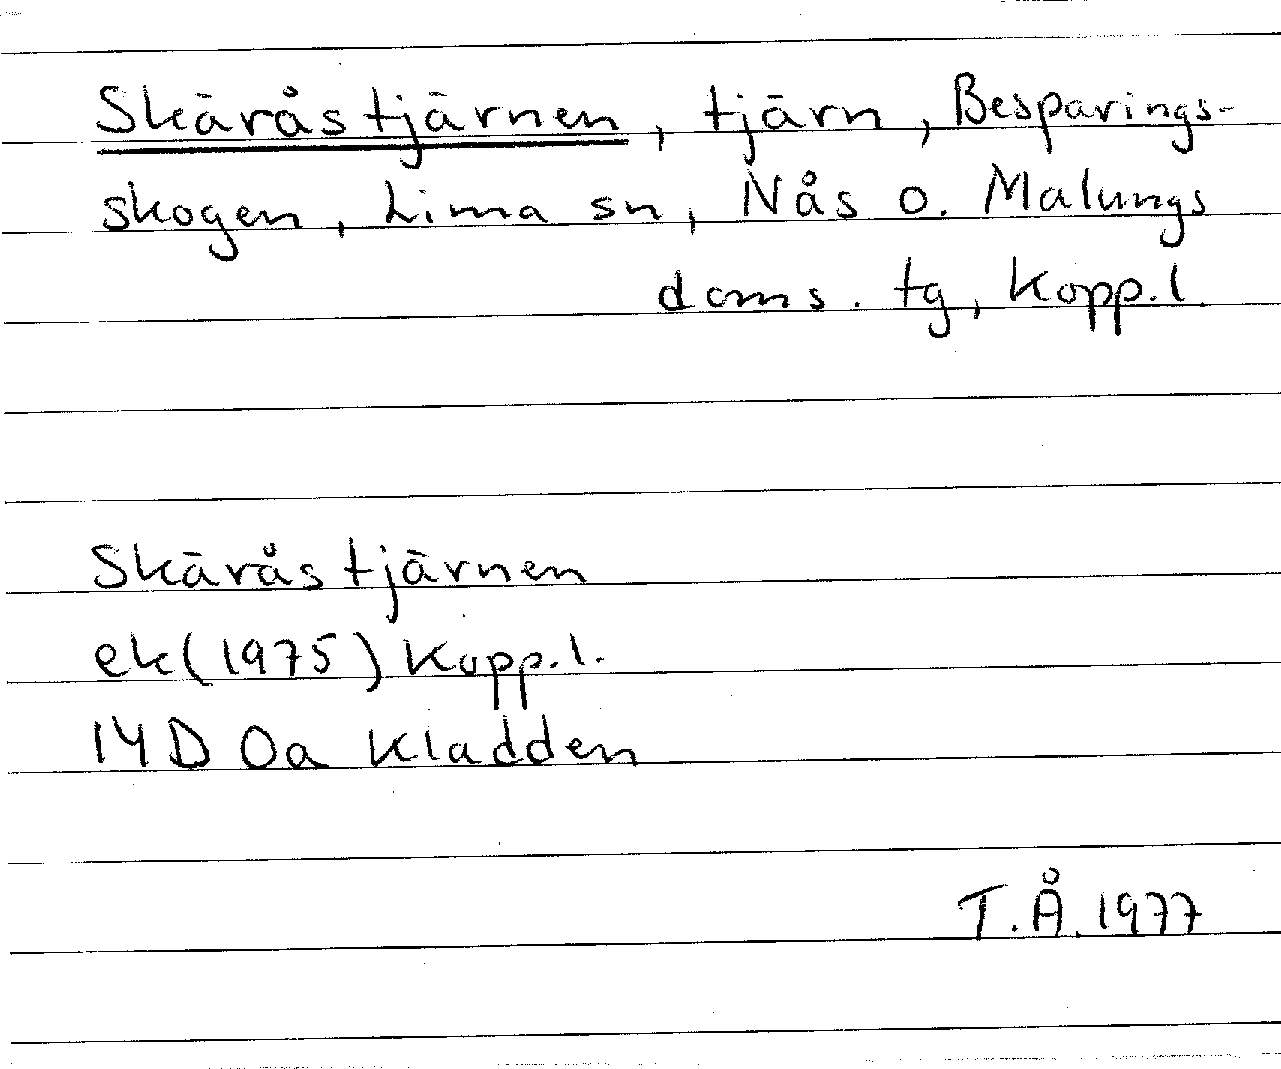 Skäråstjärnen, tjärn, Besparings-
skogen, Lima sn, Nås o. Malungs
doms. tg, Kopp.l.
Skäråstjärnen
ek(1975) Kopp.l.
14D 0a Kladden
T.Å.1977